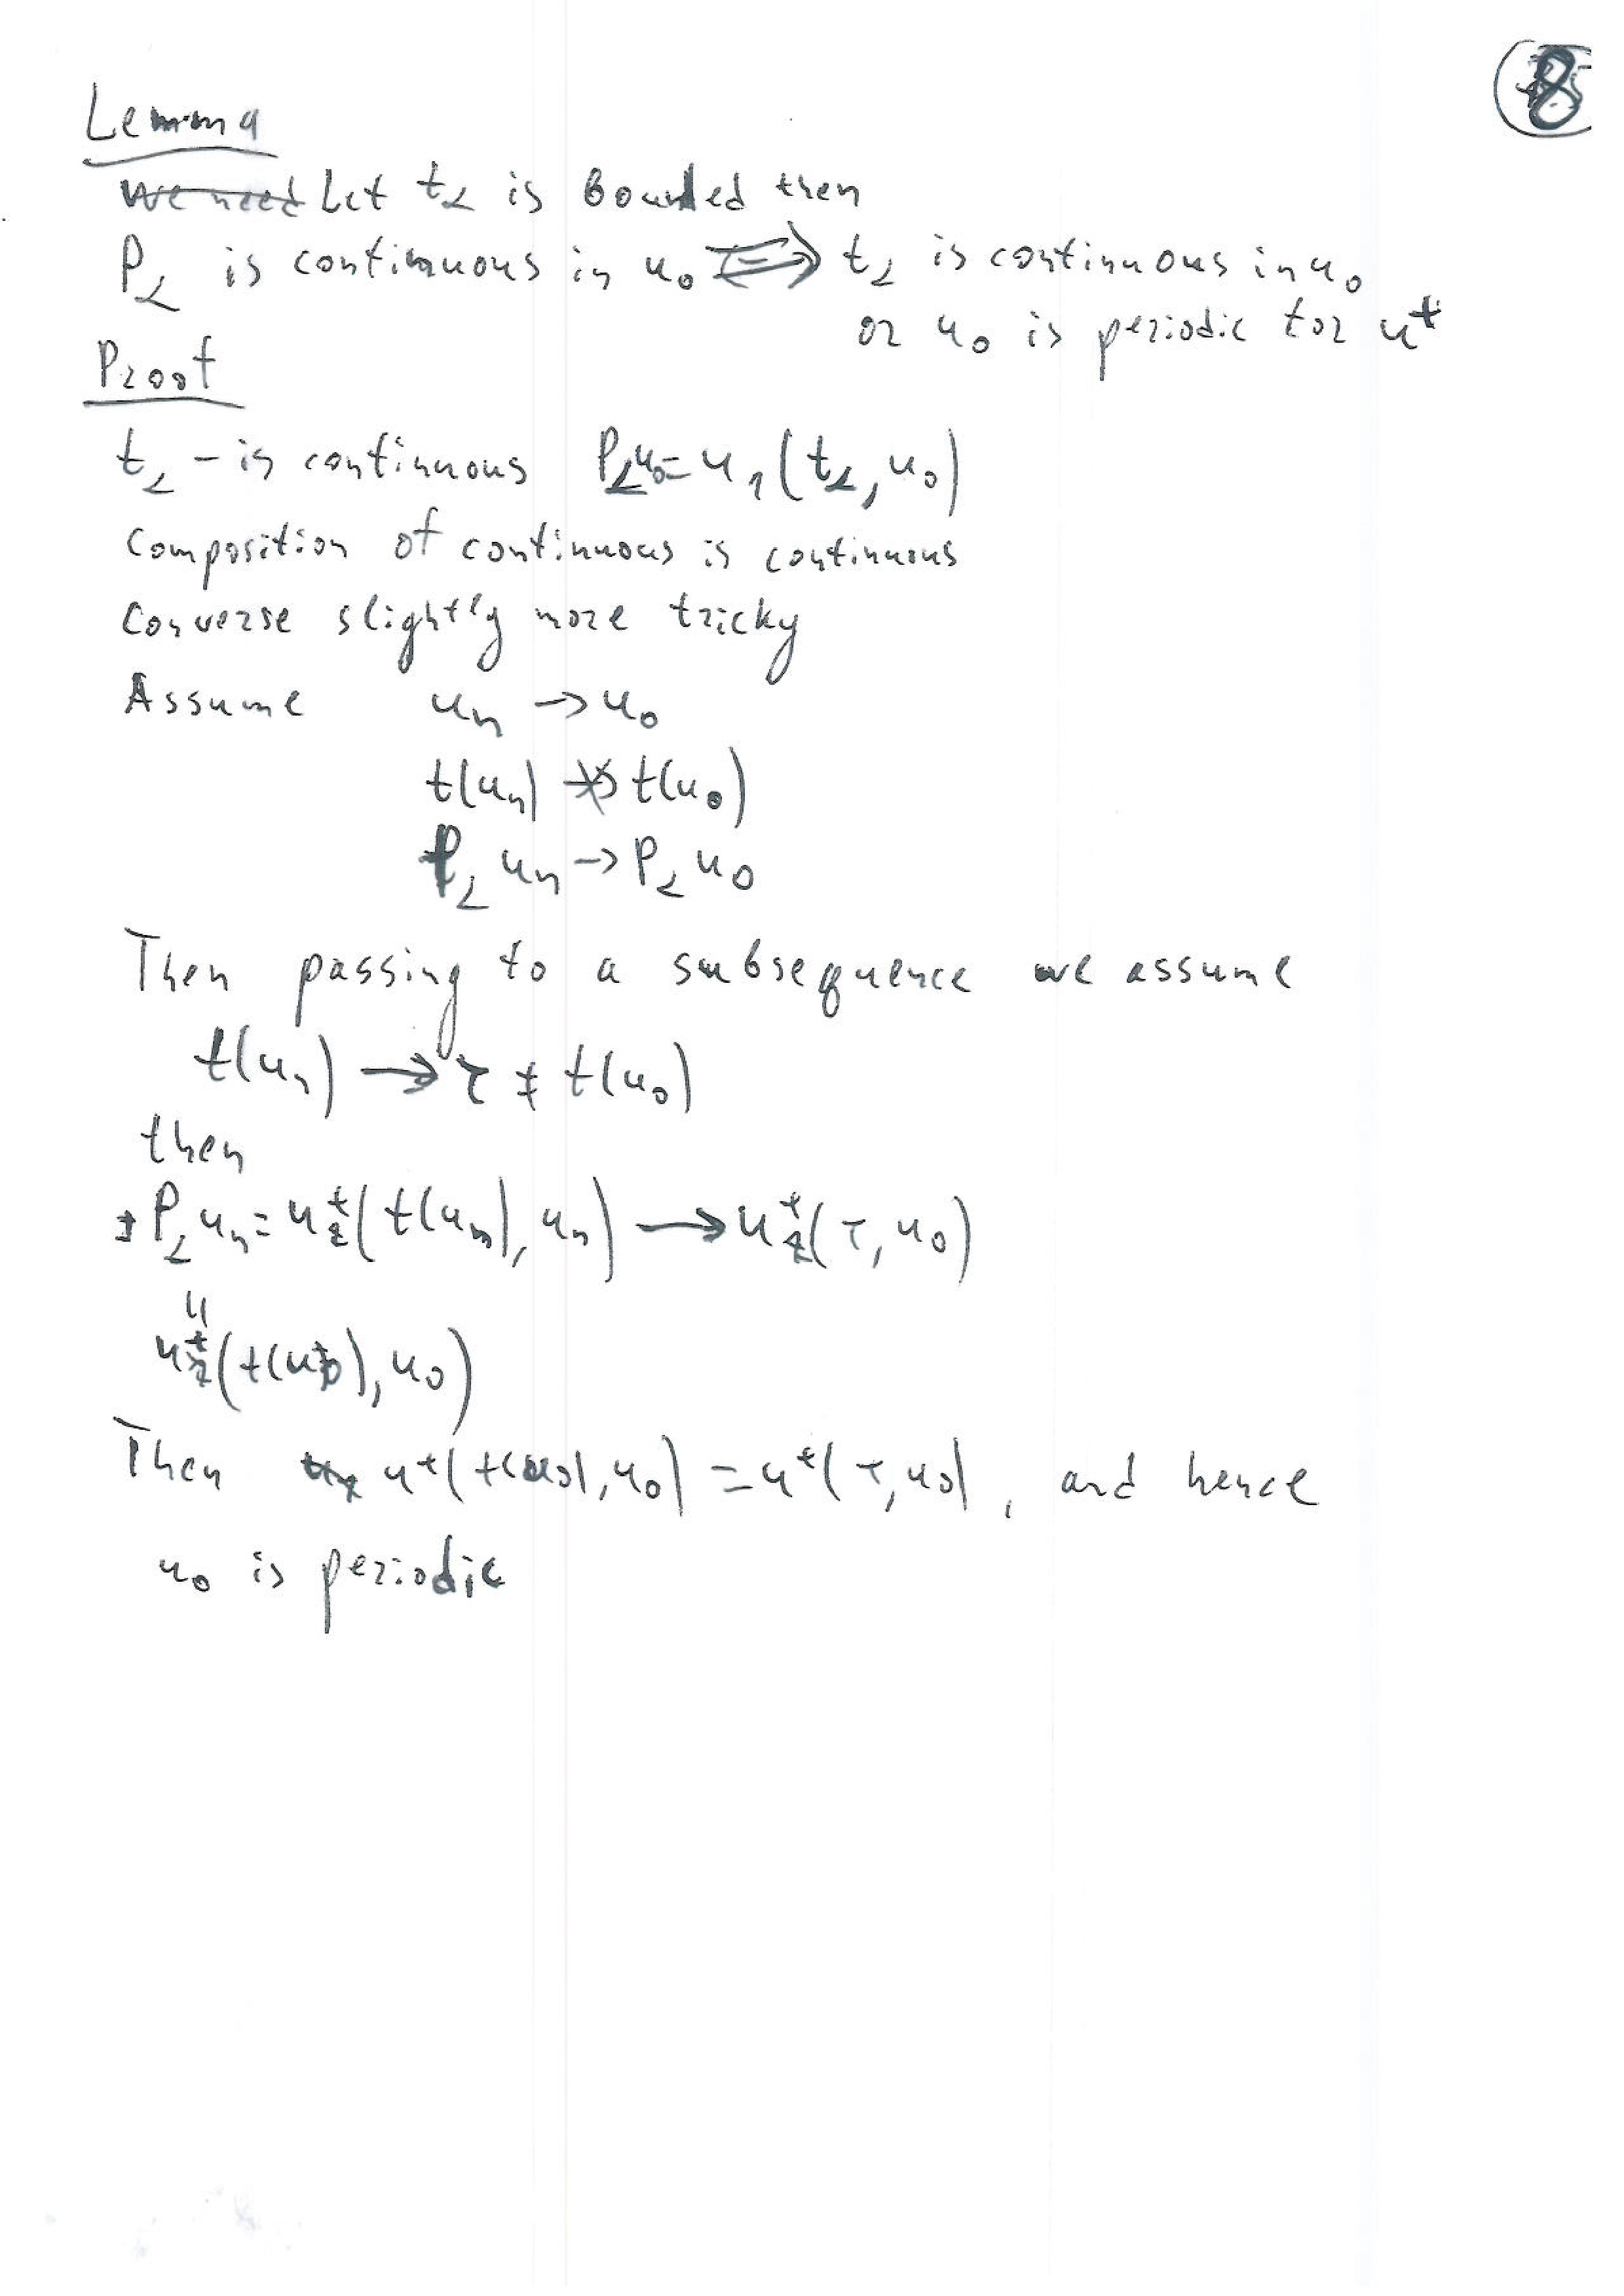 8
Lemma
We need Let t_2 is bounded then
P_2 is continuous in u_0 ⟺ t_2 is continuous in u_0
or u_0 is periodic for u^+
Proof
t_2 - is continuous P_2 u_0 = u_1(t_2, u_0)
composition of continuous is continuous
Converse slightly more tricky
Assume u_n → u_0
t(u_n) ↛ t(u_0)
P_2 u_n → P_2 u_0
Then passing to a subsequence we assume
t(u_n) → τ ≠ t(u_0)
then
P_2 u_n = u^+(t(u_n), u_n) → u^+(τ, u_0)
॥
u^+(t(u_0), u_0)
Then u^+(t(u_0), u_0) = u^+(τ, u_0), and hence
u_0 is periodic